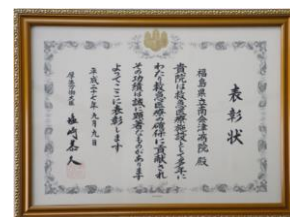 表彰状
福島県立南会津病院 殿
貴院は救急医療施設として多年に
わたり救急医療の確保に貢献され
その功績は誠に顕著なものがあります
よってここに表彰します
平成二十七年九月九日
厚生労働大臣 塩崎恭久